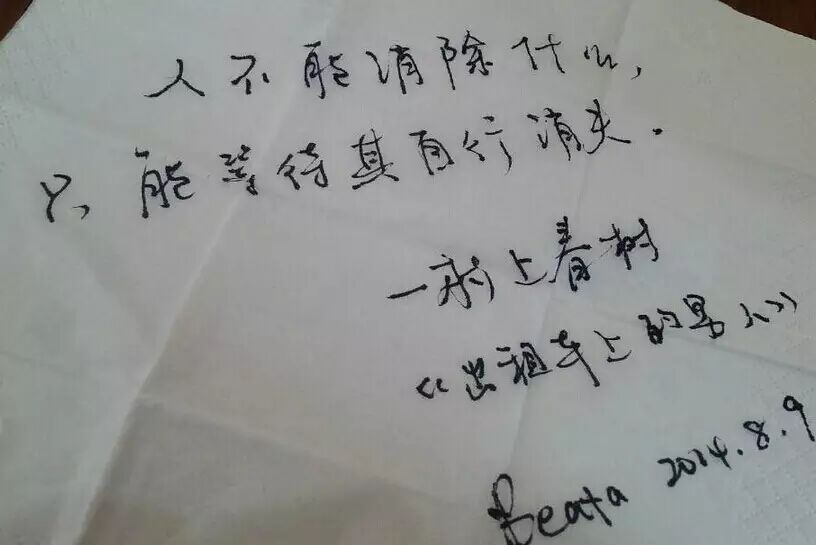 人不能消除什么,
只能等待其自行消失.
—村上春树
《出租车上的男人》
Beata 2014.8.9